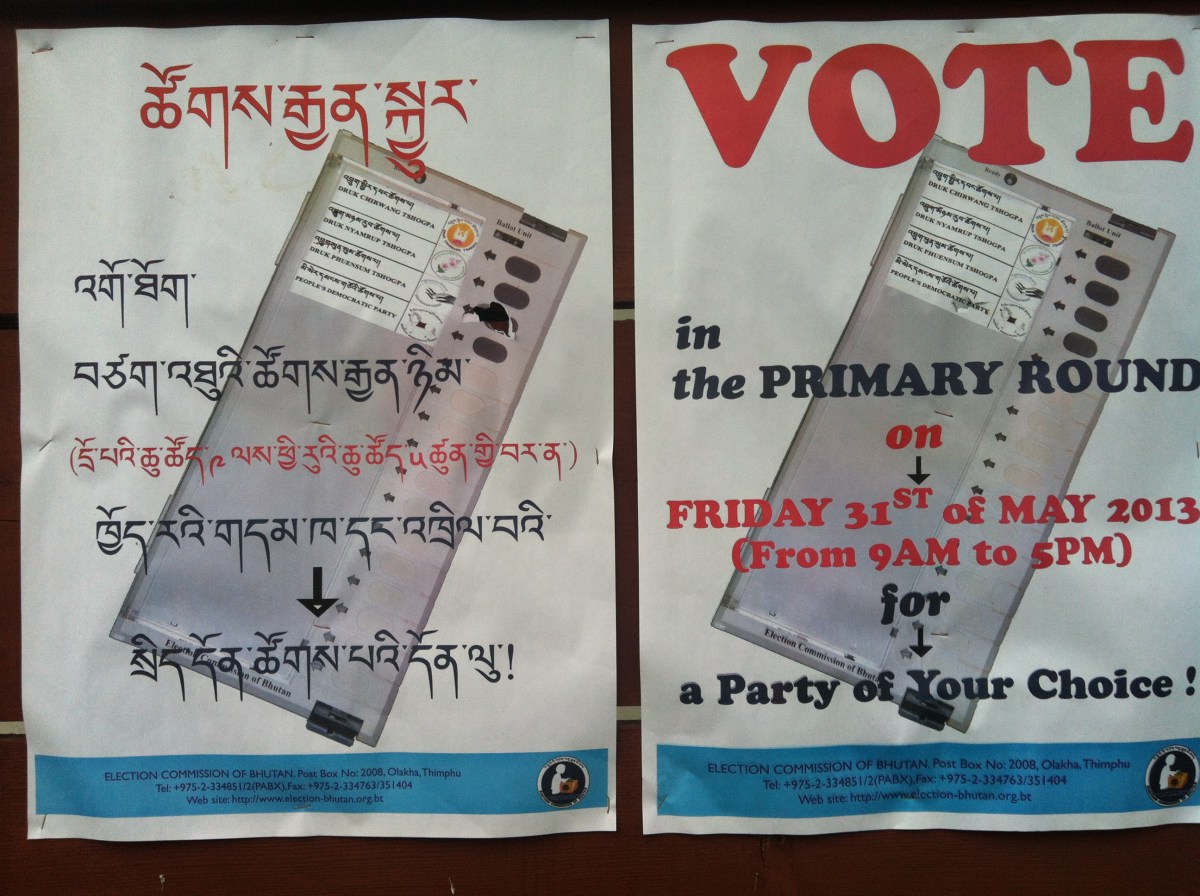 ཚོགས་རྒྱན་སྐུར་
འབྲུག་སྤྱིར་དབང་ཚོགས་པ།
DRUK CHIRWANG TSHOGPA
འབྲུག་མཉམ་རུབ་ཚོགས་པ།
DRUK NYAMRUP TSHOGPA
འབྲུག་ཕུན་སུམ་ཚོགས་པ།
DRUK PHUENSUM TSHOGPA
མི་སེར་དམངས་གཙོའི་ཚོགས་པ།
PEOPLE'S DEMOCRATIC PARTY
Ballot Unit
འགོ་ཐོག་
བཙག་འཐུའི་ཚོགས་རྒྱན་ཉིམ་
(དྲོ་པའི་ཆུ་ཚོད་༩ ལས་ཕྱི་རུའི་ཆུ་ཚོད་༥ ཚུན་གྱི་བར་ན་)
ཁྱོད་རའི་གདམ་ཁ་དང་འཁྲིལ་བའི་
སྲིད་དོན་ཚོགས་པའི་དོན་ལུ་!
Election Commission of Bhutan
ELECTION COMMISSION OF BHUTAN. Post Box No: 2008, Olakha, Thimphu
Tel: +975-2-334851/2(PABX),Fax: +975-2-334763/351404
Web site: http://www.election-bhutan.org.bt
VOTE
Ready
འབྲུག་སྤྱིར་དབང་ཚོགས་པ།
DRUK CHIRWANG TSHOGPA
འབྲུག་མཉམ་རུབ་ཚོགས་པ།
DRUK NYAMRUP TSHOGPA
འབྲུག་ཕུན་སུམ་ཚོགས་པ།
DRUK PHUENSUM TSHOGPA
མི་སེར་དམངས་གཙོའི་ཚོགས་པ།
PEOPLE'S DEMOCRATIC PARTY
Ballot Unit
in
the PRIMARY ROUND
on
FRIDAY 31ST of MAY 2013
(From 9AM to 5PM)
for
a Party of Your Choice !
Election Commission of Bhutan
ELECTION COMMISSION OF BHUTAN. Post Box No: 2008, Olakha, Thimphu
Tel: +975-2-334851/2(PABX),Fax: +975-2-334763/351404
Web site: http://www.election-bhutan.org.bt